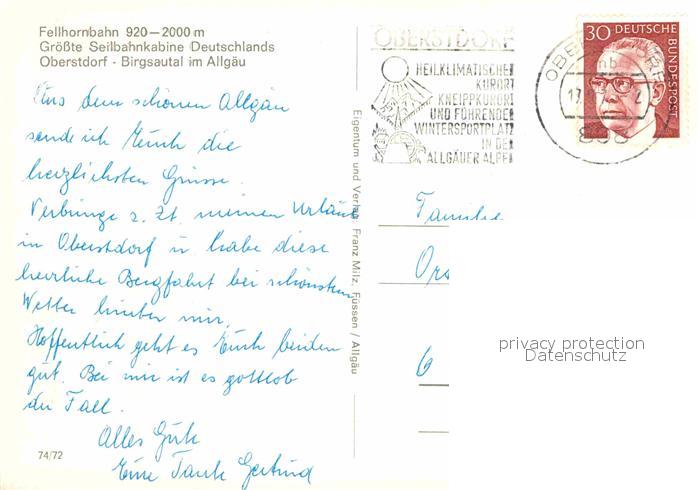 Fellhornbahn 920—2000 m
Größte Seilbahnkabine Deutschlands
Oberstdorf - Birgsautal im Allgäu
Aus dem schönen Allgäu
sende ich Euch die
herzlichsten Grüsse.
Verbringe z. Zt. meinen Urlaub
in Oberstdorf u habe diese
herrliche Bergfahrt bei schönstem
Wetter hinter mir.
Hoffentlich geht es Euch beiden
gut. Bei mir ist es gottlob
der Fall.
Alles Gute
Eure Tante Gertrud
74/72
Eigentum und Verlag: Franz Milz, Füssen / Allgäu
OBERSTDORF
HEILKLIMATISCHER
KURORT
KNEIPPKURORT
UND FÜHRENDER
WINTERSPORTPLATZ
IN DEN
ALLGÄUER ALPEN
30 DEUTSCHE
BUNDESPOST
nb
Familie
6
privacy protection
Datenschutz